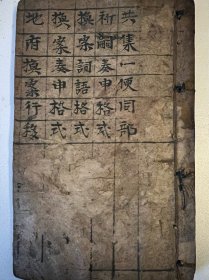 共集一便同部
祈嗣奏申格式
換案詞語格式
換案奏申格式
地府換案行移